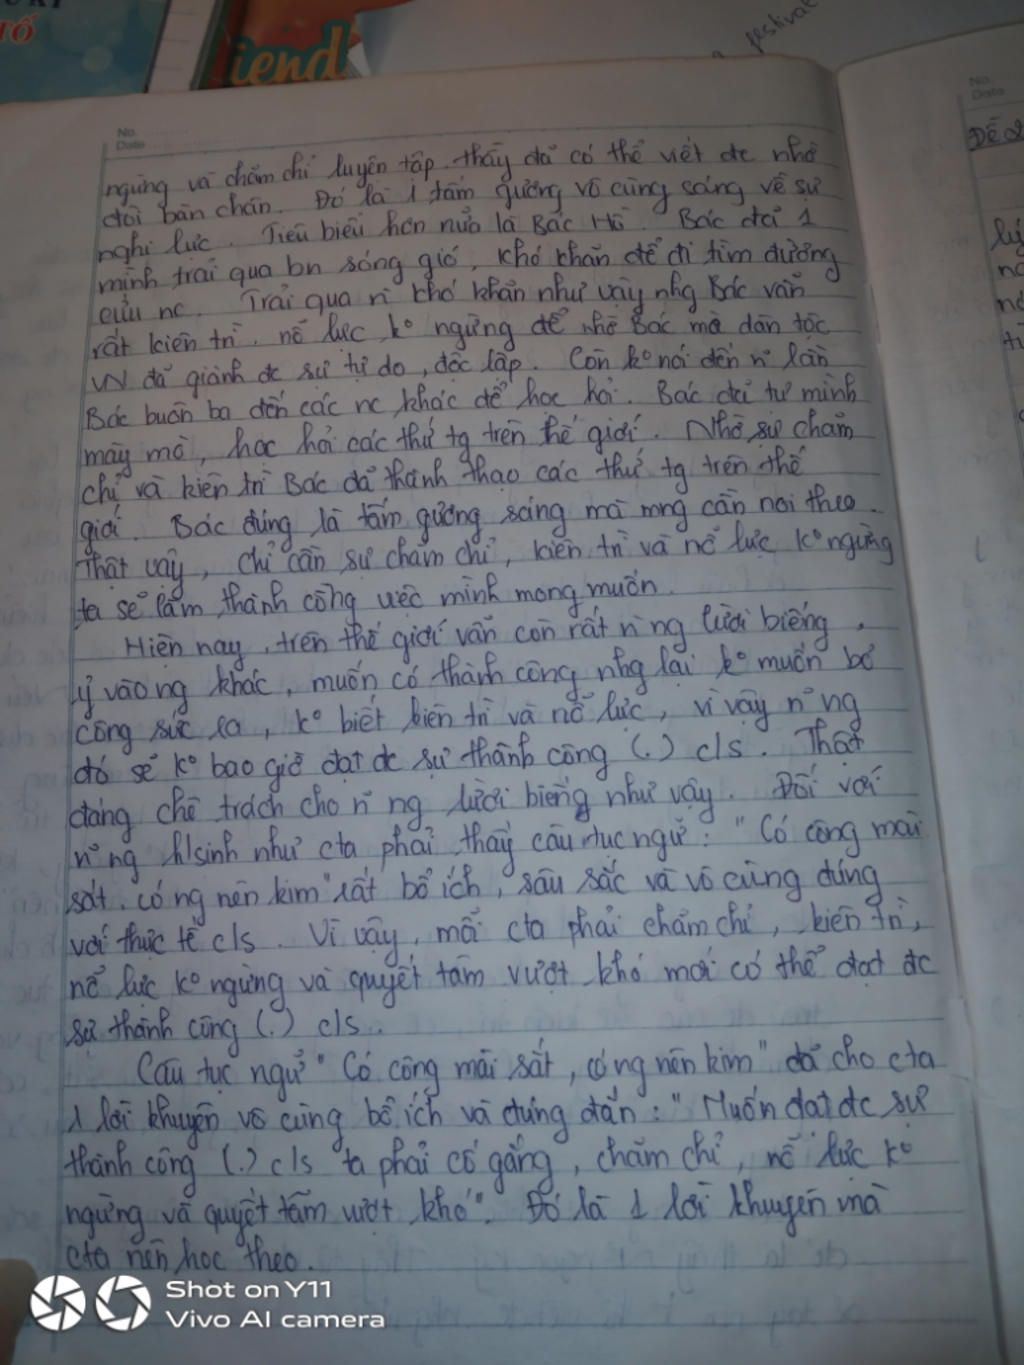 TỐ
iend
festival
No.
Date
No.
Date
ngừng và chăm chỉ luyện tập thầy đã có thể viết đc nhờ
đôi bàn chân. Đó là 1 tấm gương vô cùng sáng về sự
nghị lực. Tiêu biểu hơn nữa là Bác Hồ. Bác đã 1
mình trải qua bn sóng gió, khó khăn để đi tìm đường
cứu nc. Trải qua n` khó khăn như vậy nhg Bác vẫn
rất kiên trì, nổ lực k° ngừng để nhờ Bác mà dân tộc
VN đã giành đc sự tự do, độc lập. Còn k° nói đến n~ lần
Bác buôn ba đến các nc khác để học hỏi. Bác đã tự mình
mày mò, học hỏi các thứ tg trên thế giới. Nhờ sự chăm
chỉ và kiên trì Bác đã thành thạo các thứ tg trên thế
giới. Bác đúng là tấm gương sáng mà mng cần noi theo.
Thật vậy, chỉ cần sự chăm chỉ, kiên trì và nổ lực k° ngừng
ta sẽ làm thành công việc mình mong muốn.
Hiện nay, trên thế giới vẫn còn rất n` ng lười biếng,
ỷ vào ng khác, muốn có thành công nhg lại k° muốn bỏ
công sức ra, k° biết kiên trì và nổ lực, vì vậy n~ ng
đó sẽ k° bao giờ đạt đc sự thành công (.) c/s. Thật
đáng chê trách cho n~ ng lười biếng như vậy. Đối với
n~ ng h/sinh như cta phải thấy câu tục ngữ: "Có công mài
sắt, có ng nên kim" rất bổ ích, sâu sắc và vô cùng đúng
với thực tế c/s. Vì vậy, mỗi cta phải chăm chỉ, kiên trì,
nổ lực k° ngừng và quyết tâm vượt khó mới có thể đạt đc
sự thành công (.) c/s.
Câu tục ngữ "Có công mài sắt, có ng nên kim" đã cho cta
1 lời khuyên vô cùng bổ ích và đúng đắn: "Muốn đạt đc sự
thành công (.) c/s ta phải cố gắng, chăm chỉ, nổ lực k°
ngừng và quyết tâm vượt khó". Đó là 1 lời khuyên mà
cta nên học theo.
Shot on Y11
Vivo AI camera